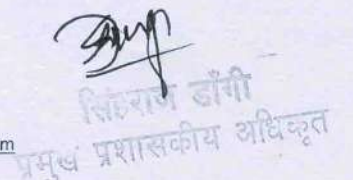 सिंहराज डाँगी
m
प्रमुख प्रशासकीय अधिकृत